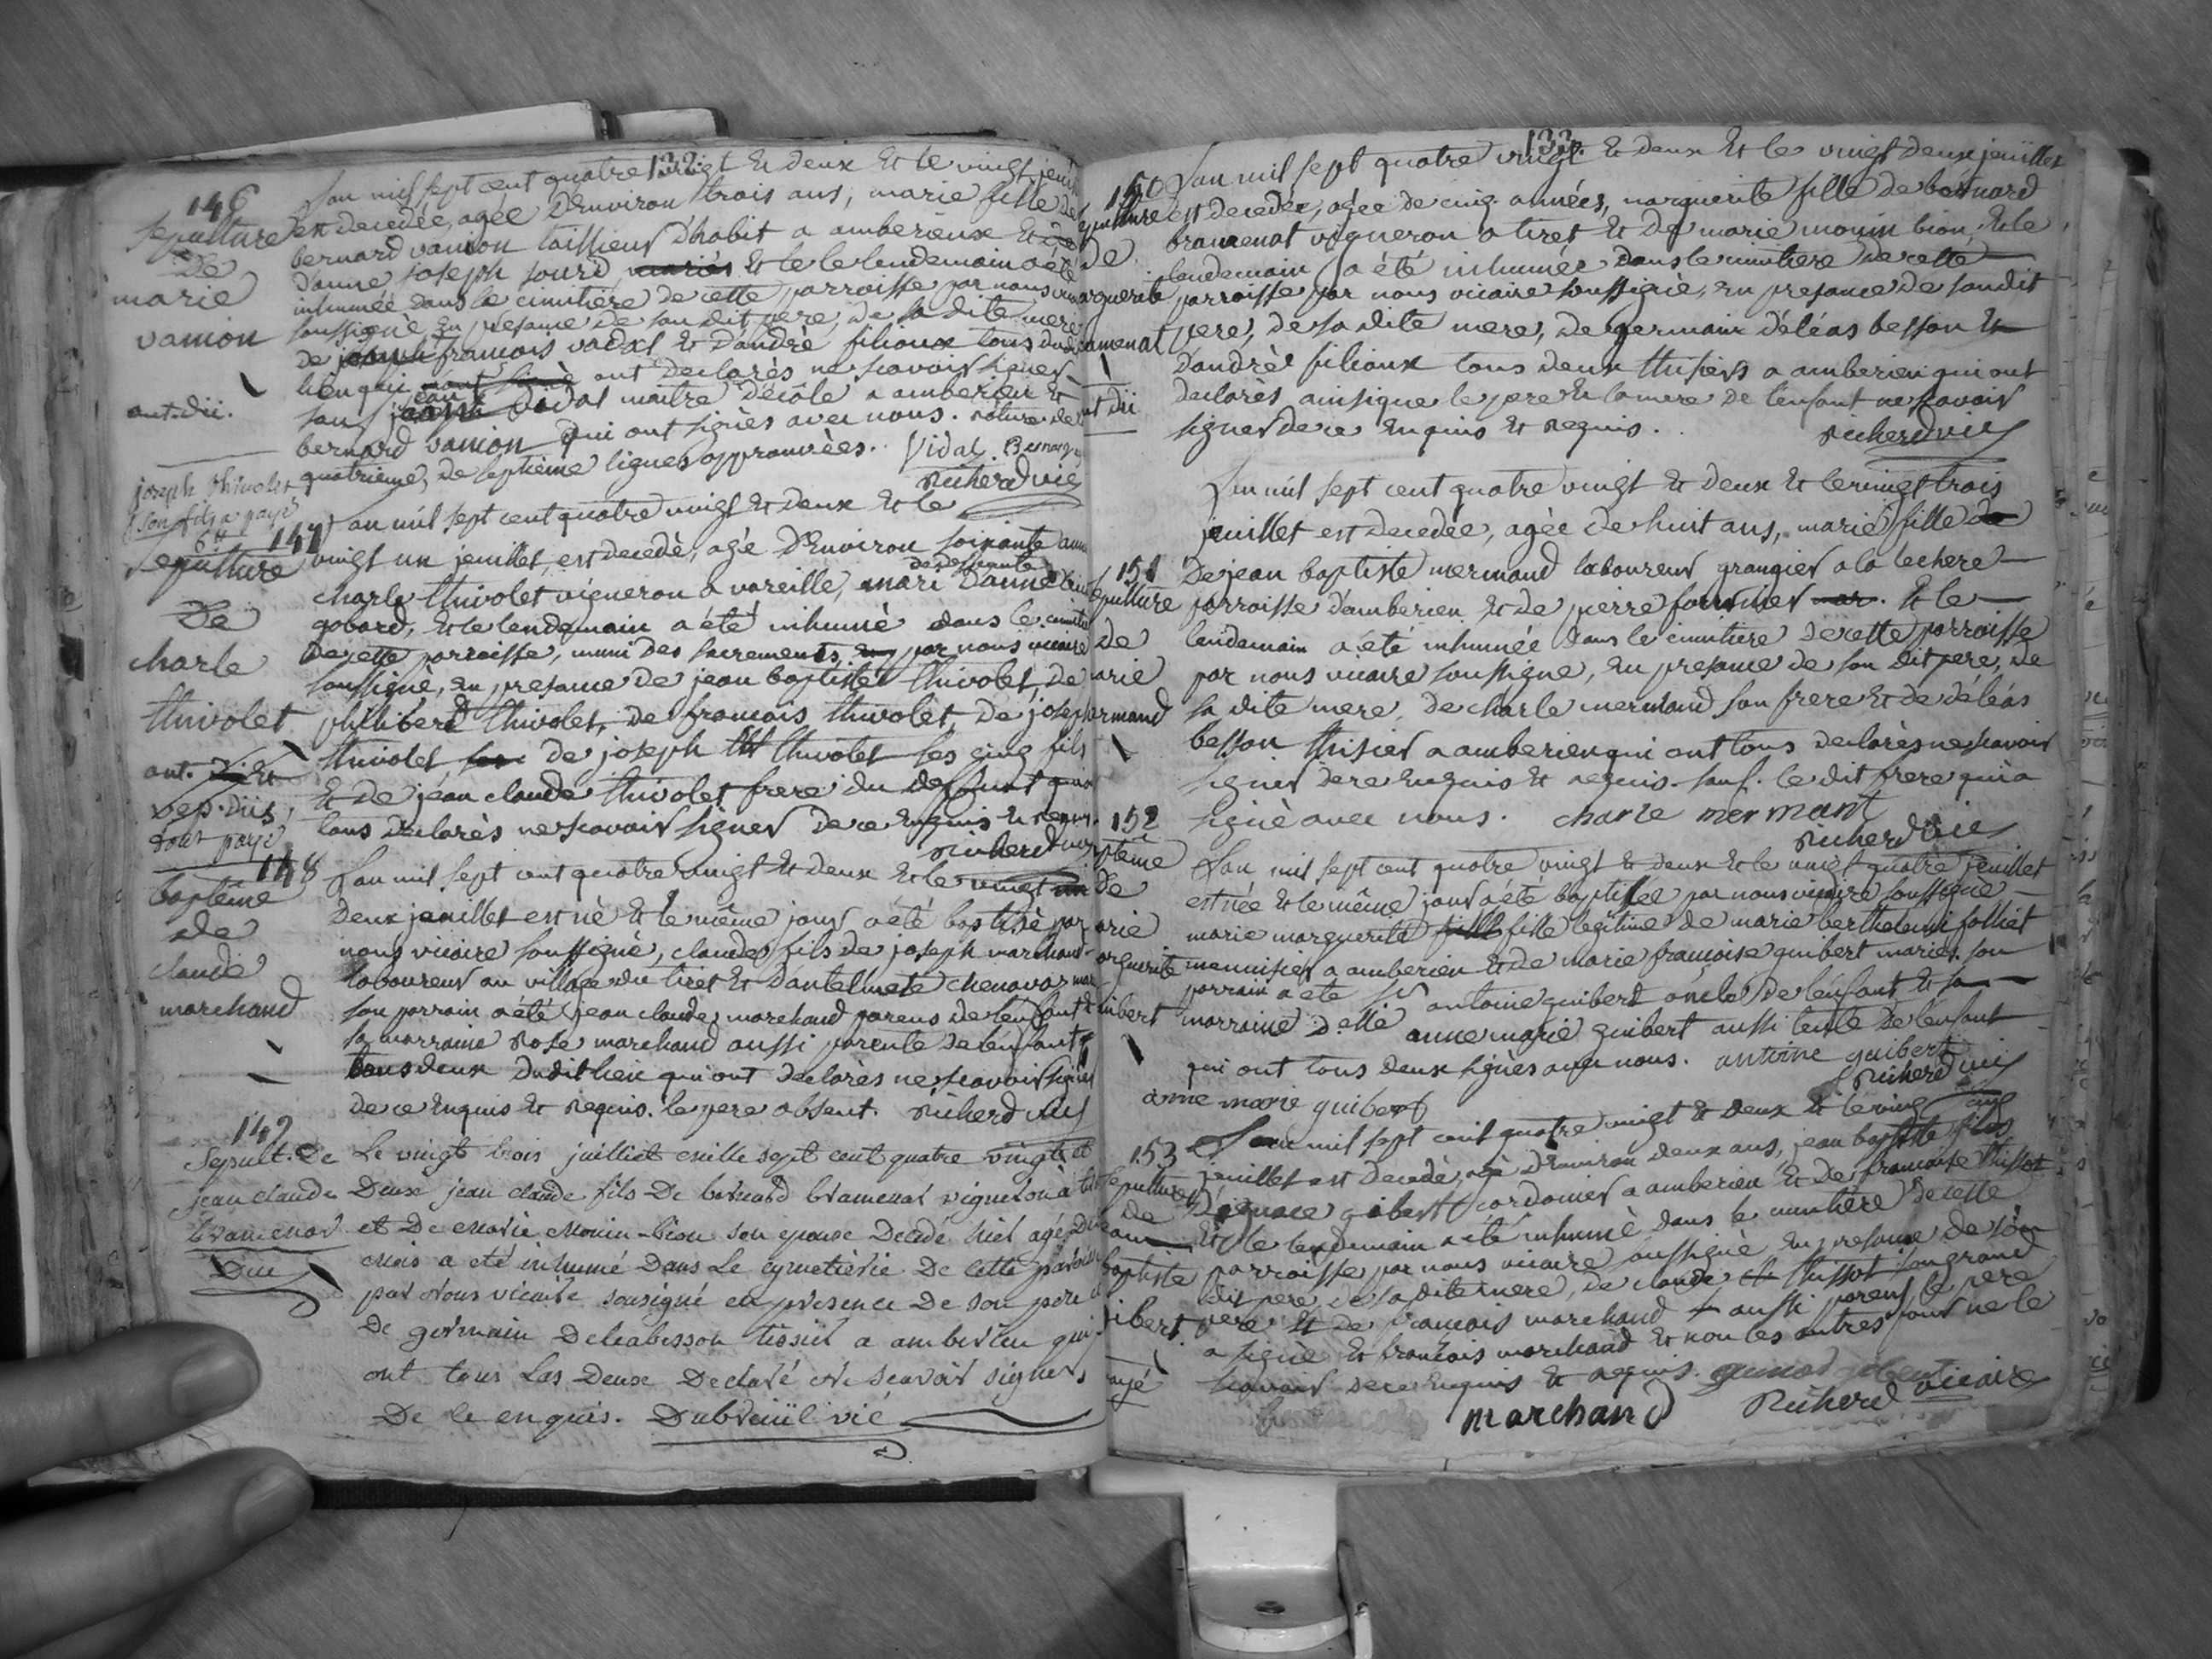 132.
146
Sepulture
De
marie
vanion
ant. dii.
L'an mil sept cent quatre vingt Et deux Et le vingt
est decedée, agée D'Environ trois ans, marie fille de
bernard vanion taillieur D'habit a amberieux Et de
D'anne joseph sourd mariés Et le le lendemain a été
inhumée dans le cimitiere de cette parroisse par nous
soussigné En presance de son dit pere, de sa dite mere
de joseph francois vadal Et D'andrè filioux tous du dit
lieu qui ont Declarés ne scavoir signer
sauf jean vidal maitre D'école a amberien Et
bernard vanion qui ont signès avec nous. rature de
quatrieme, de septième lignes approuvées. Vidal. Bernard
Richerd vic
joseph thivolet
son fils a payé
6 ₶
147
Sepulture
De
charle
thivolet
ant.
vep. diis,
tout payé
L'an mil sept cent quatre vingt Et deux Et le
vingt un jeuillet, est decedè, agé D'Environ soixante
charle thivolet vigneron a vareille, mari D'anne
gobard, Et le lendemain a été inhumè dans le
De cette parroisse, muni des sacrements, par nous vicaire
soussigné, En presance de jean baptiste thivolet, de
philibert thivolet, de francois thivolet, De joseph
thivolet de joseph thivolet ses cinq fils
Et de jean claude thivolet frere du defunt qui ont
tous Declarès ne scavoir signer De ce Enquis Et requis.
Richerd vic
148
baptême
de
claude
marchand
L'an mil sept cent quatre vingt Et deux Et le vingt
Deux jeuillet est nè Et le même jour a été baptisè par
nous vicaire soussignè, claude fils de joseph marchand
laboureur au village du tiret Et D'antelmete chenavas
son parrain a été jean claude marchand parens de l'enfant
sa marraine Rose marchand aussi parente de l'enfant
tous deux Dudit lieu qui ont declarès ne scavoir signer
de ce Enquis Et Requis. le pere absent. Richerd vic
149
Sepult. De
jean claude
bramenat
Due
Le vingt trois juilliet mille sept cent quatre vingts et
Deux jean claude fils De bernard bramenat vigneron à
et De marie monin-bion son epouse Decedé hier agé De
mois a eté inhumé Dans Le cymetiérie De cette
par Nous vicaire sousigné en presence De son pere
De germain Deleabesson tissier a amberien qui
ont tous Les Deux Declaré ne scavoir signer,
De ce enquis. Dubreüil vic
133.
150
sepulture
De
marguerite
bramenat
ant dii
L'an mil sept quatre vingt Et deux Et le vingt deux jeuillet
est decedée, agée de cinq années, marguerite fille de bernard
bramenat vigneron a tiret Et De marie monin bion, Et le
lendemain a été inhumée dans le cimitiere de cette
parroisse par nous vicaire soussignè, En presance de son dit
pere, de sa dite mere, De germain déléas besson Et
D'andrè filioux tous deux thisiers a amberien qui ont
declarès ainsi que le pere Et la mere de l'enfant ne scavoir
signer de ce Enquis Et Requis.
Richerd vic
151
sepulture
de
marie
mermand
L'an mil sept cent quatre vingt Et deux Et le vingt trois
jeuillet est decedée, agée de huit ans, marie fille
De jean baptiste mermand laboureur grangier a la lechere
parroisse d'amberien Et de pierre Et le
lendemain a été inhumée dans le cimitiere de cette parroisse
par nous vicaire soussigné, En presance de son dit pere, De
sa dite mere, De charle mermand son frere Et de déléas
besson thisier a amberien qui ont tous declarès ne scavoir
signer de ce Enquis Et requis. sauf. le dit frere qui a
signè avec nous. charle mermant
Richerd vic
152
baptême
De
marie
marguerite
L'an mil sept cent quatre vingt Et deux Et le vingt quatre jeuillet
est née Et le même jour a été baptisée par nous vicaire soussigné
marie marguerite fille legitime de marie berthelemi folliet
menuisier a amberien Et de marie francoise guibert mariés. son
parrain a été Sr antoine guibert oncle de l'enfant Et sa
marraine Delle anne marie guibert aussi tente de l'enfant
qui ont tous deux signès avec nous. antoine guibert
Richerd vic
anne marie guibert
153
sepulture
De
jean
baptiste
gibert
payé
L'an mil sept cent quatre vingt Et deux Et le vingt cinq
jeuillet est decedè, agè D'environ deux ans, jean baptiste fils
D'ignace gibert cordonier a amberien Et de francoise thissot
Et le lendemain a été inhumè dans le cimitière de cette
parroisse par nous vicaire soussignè, En presance de son
dit pere, de sa dite mere, de claude thissot son grand
pere Et de francois marchand aussi parens, le pere
a signè Et francois marchand Et non les autres pour ne le
scavoir de ce Enquis Et requis.
marchand Richerd vicaire